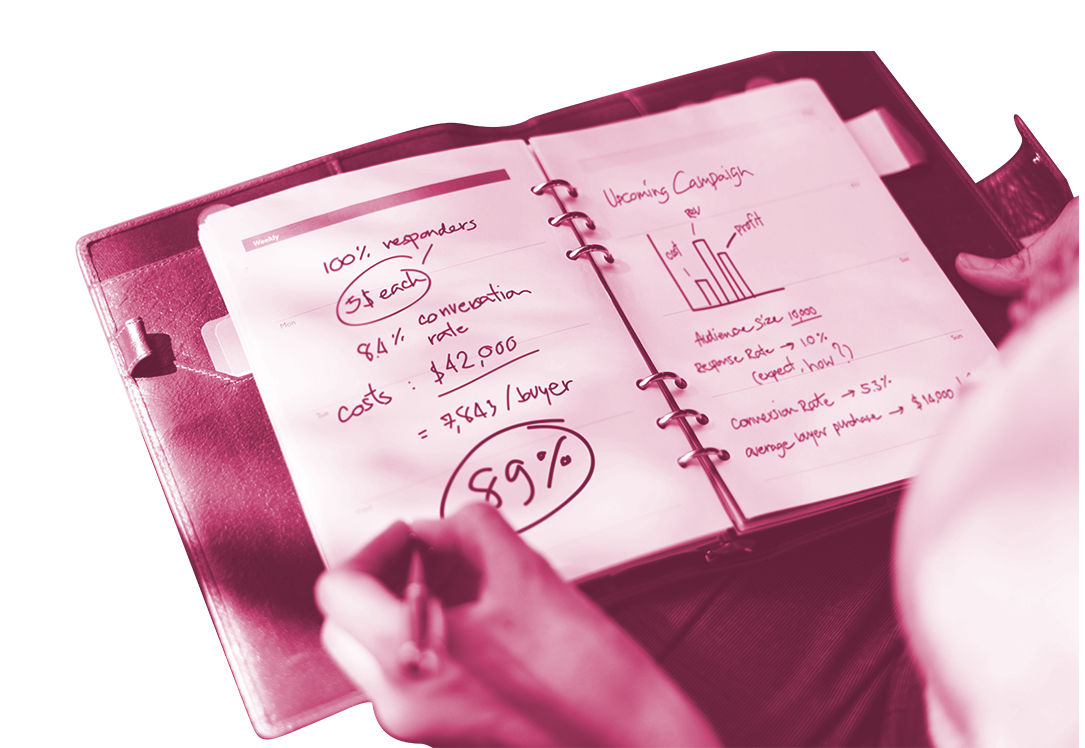 Weekly
100% responders
3$ each
Mon
84% conversation
rate
costs : $42,000
= 7,843 / buyer
89%
Upcoming Campaign
cost
Rev
profit
Audience Size 10,000
Response Rate → 10%
(expect, how?)
Sun
Conversion Rate → 5.3%
average buyer purchase → $14,000